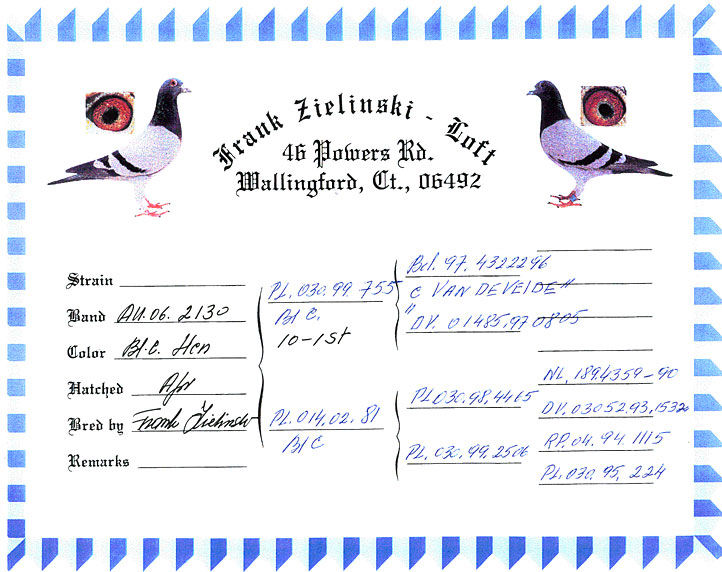 Frank Zielinski - Loft
46 Powers Rd.
Wallingford, Ct., 06492
Strain
Band AU.06. 2130
Color Bl.C. Hen
Hatched Apr
Bred by Frank Zielinski
Remarks
PL. 030. 99. 755
Bl C.
10-1st
PL. 014. 02. 81
Bl C
Bel. 97. 4322296
C VAN DEVEIDE"
"
DV. 01485, 97 0805
PL 030. 98. 4465
PL. 030. 99. 2506
NL. 1894359-90
DV. 03052.93, 1532
RP. 04. 94 1115
PL. 030. 95. 224